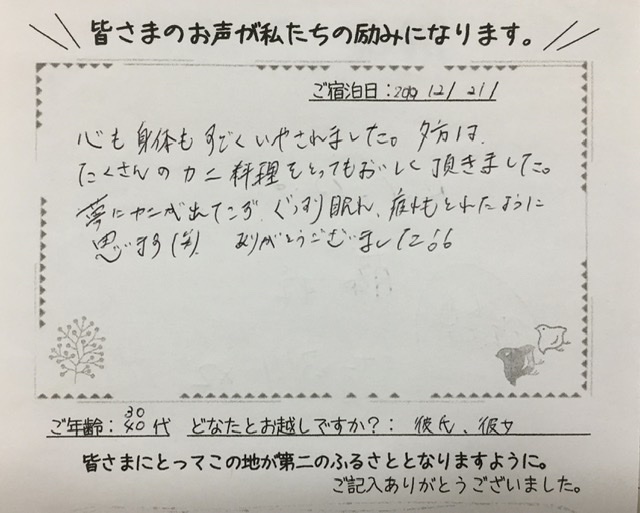 皆さまのお声が私たちの励みになります。
ご宿泊日：2019 12/ 21/
心も身体もすごくいやされました。夕方は、
たくさんのカニ料理をとってもおいしく頂きました。
夢にカニが出てこず、ぐっすり眠れ、疲れもとれたように
思います(笑)。ありがとうございました!!
ご年齢：30 40 代 どなたとお越しですか？：彼氏、彼女
皆さまにとってこの地が第二のふるさととなりますように。
ご記入ありがとうございました。